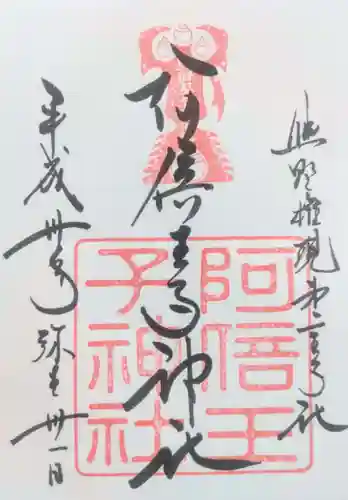 熊野権現第二王子社
阿倍王子神社
平成卅年弥生卅一日
阿倍王
子神社